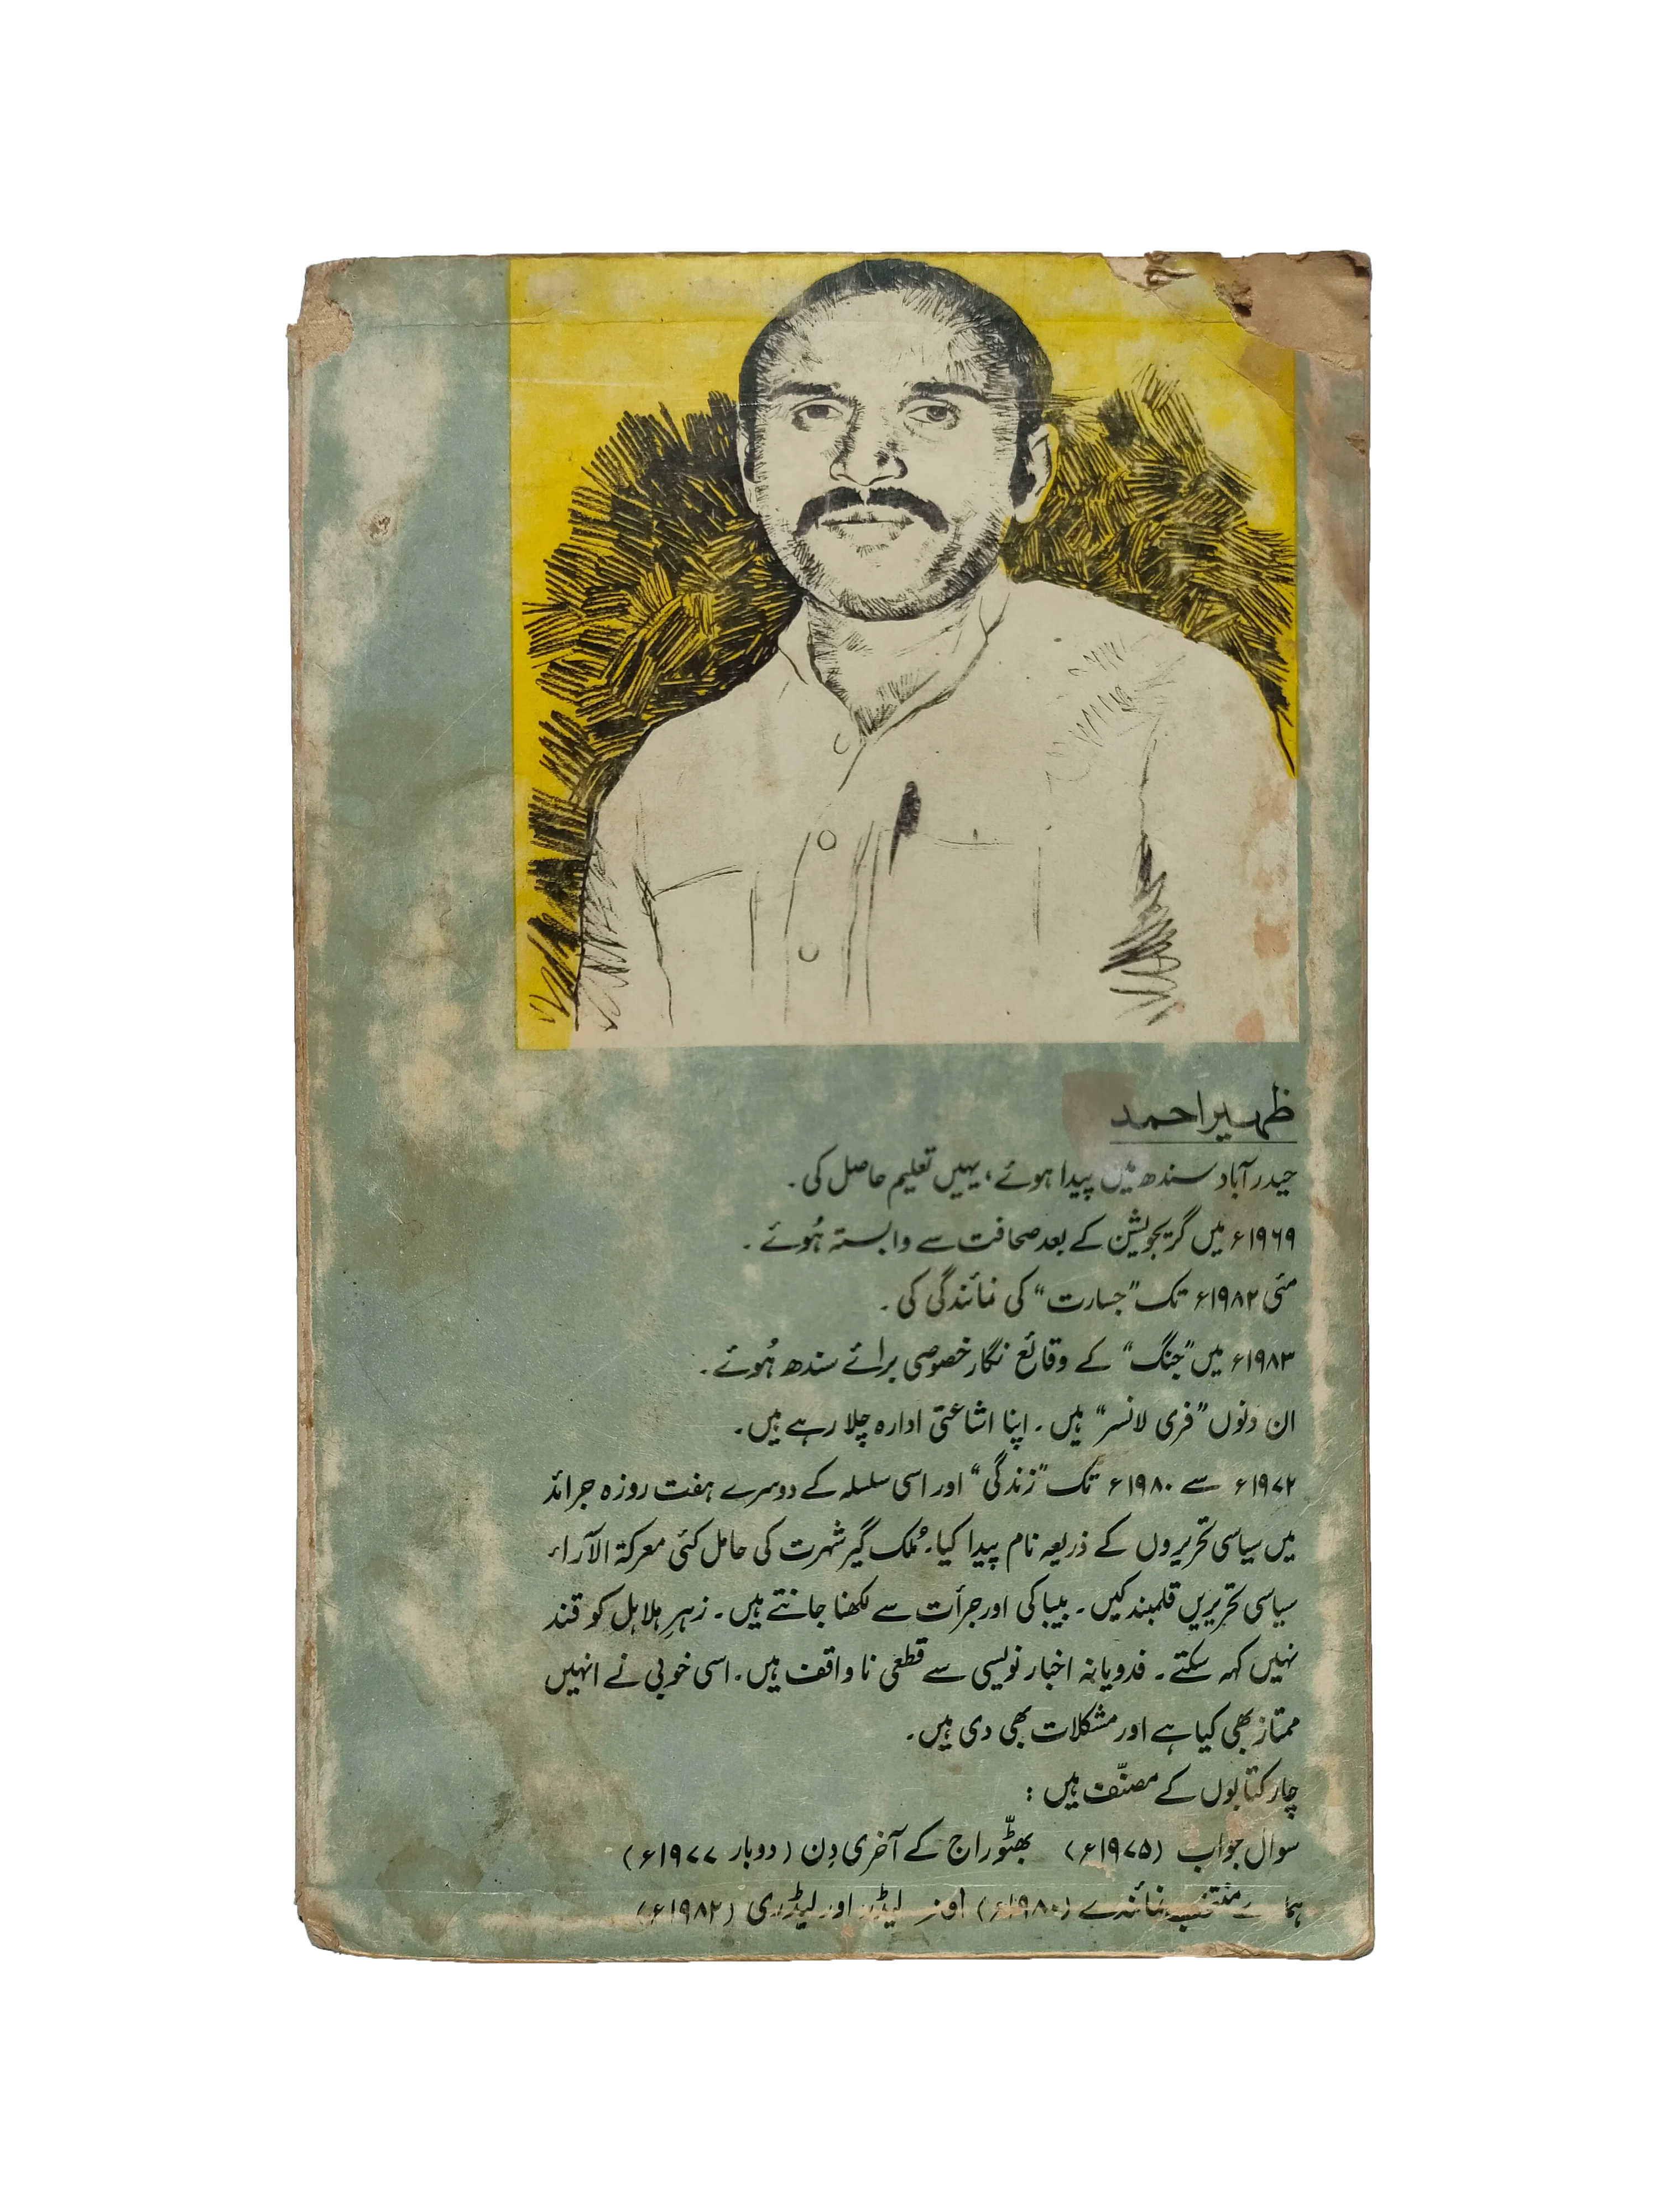 ظہیر احمد
حیدرآباد سندھ میں پیدا ہوئے، یہیں تعلیم حاصل کی۔
۱۹۶۹ء میں گریجویشن کے بعد صحافت سے وابستہ ہُوئے۔
مئی ۱۹۸۲ء تک "جسارت" کی نمائندگی کی۔
۱۹۸۳ء میں "جنگ" کے وقائع نگار خصوصی برائے سندھ ہُوئے۔
ان دنوں "فری لانسر" ہیں۔ اپنا اشاعتی ادارہ چلا رہے ہیں۔
۱۹۷۲ء سے ۱۹۸۰ء تک "زندگی" اور اسی سلسلہ کے دوسرے ہفت روزہ جرائد
میں سیاسی تحریروں کے ذریعہ نام پیدا کیا۔ مُلک گیر شہرت کی حامل کئی معرکۃ الآراء
سیاسی تحریریں قلمبند کیں۔ بیباکی اور جرأت سے لکھنا جانتے ہیں۔ زہرِ ہلاہل کو قند
نہیں کہہ سکتے۔ فدویانہ اخبار نویسی سے قطعی ناواقف ہیں۔ اسی خوبی نے انہیں
ممتاز بھی کیا ہے اور مشکلات بھی دی ہیں۔
چار کتابوں کے مصنّف ہیں :
سوال جواب (۱۹۷۵ء) بھٹّو راج کے آخری دِن (دوبار ۱۹۷۷ء)
ہمارے منتخب نمائندے (۱۹۸۰ء) اور لیڈر اور لیڈری (۱۹۸۲ء)